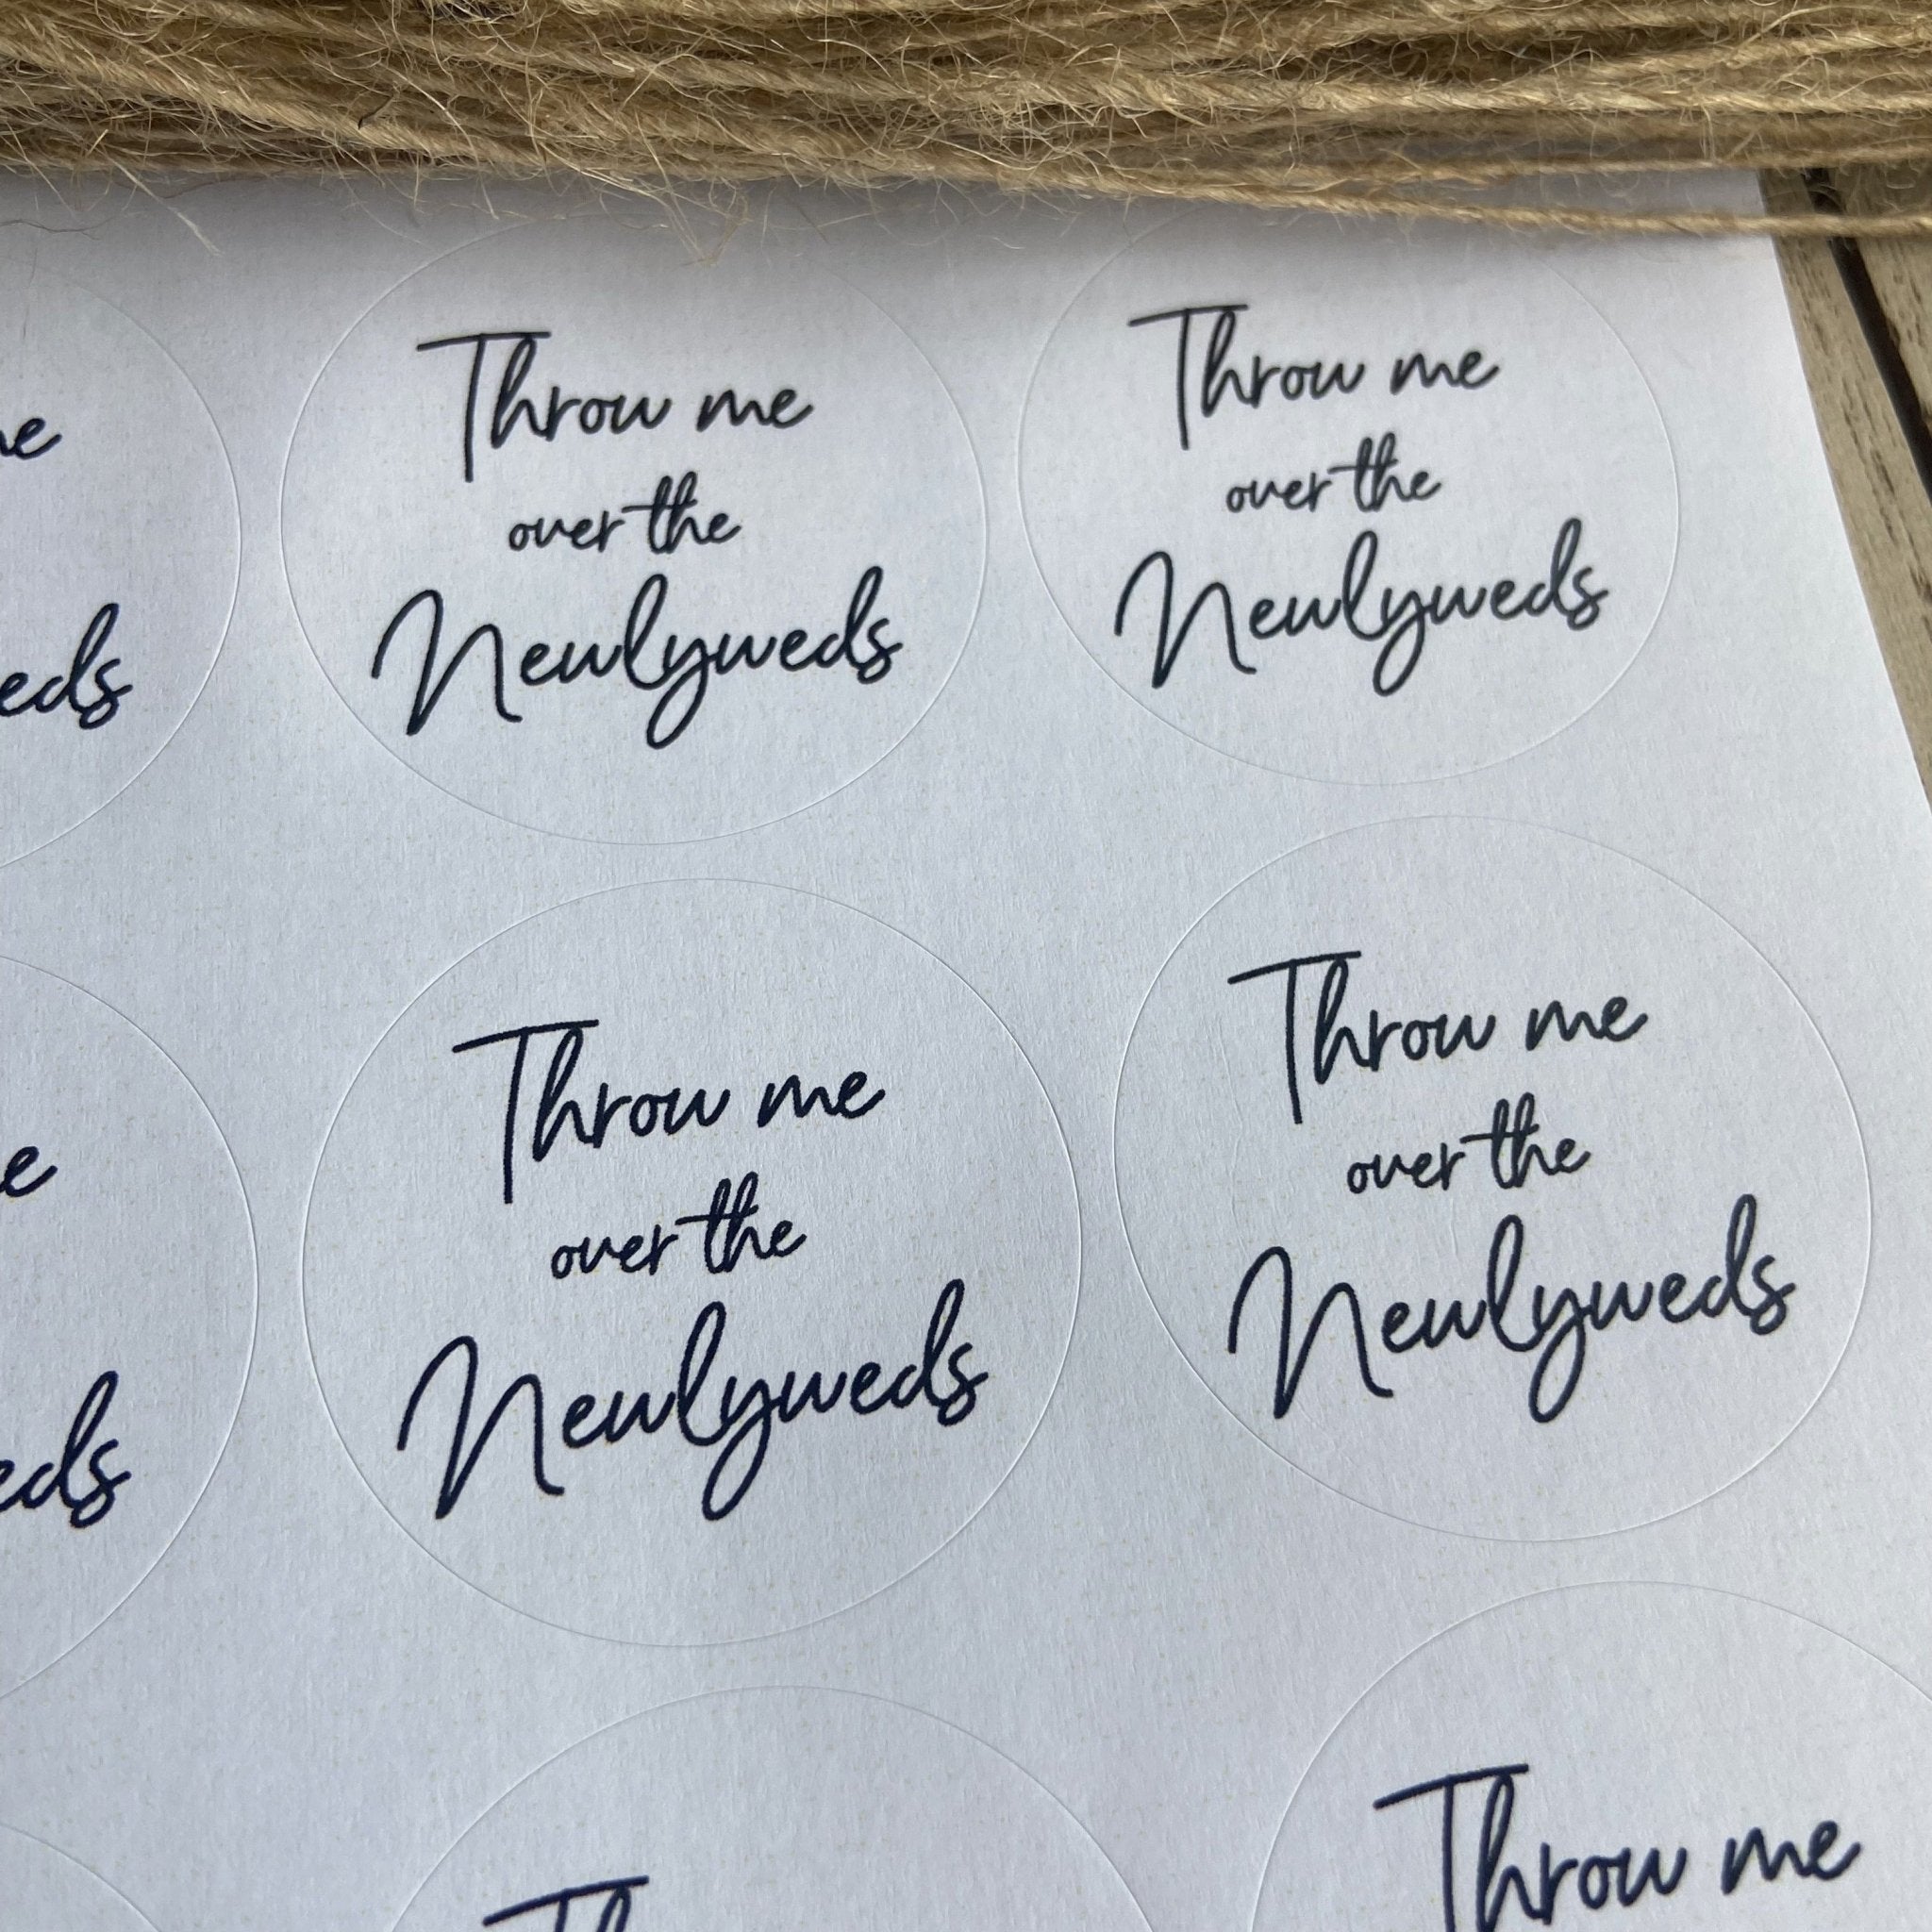 Throw me
over the
Newlyweds
Throw me
over the
Newlyweds
Throw me
over the
Newlyweds
Throw me
over the
Newlyweds
Throw me